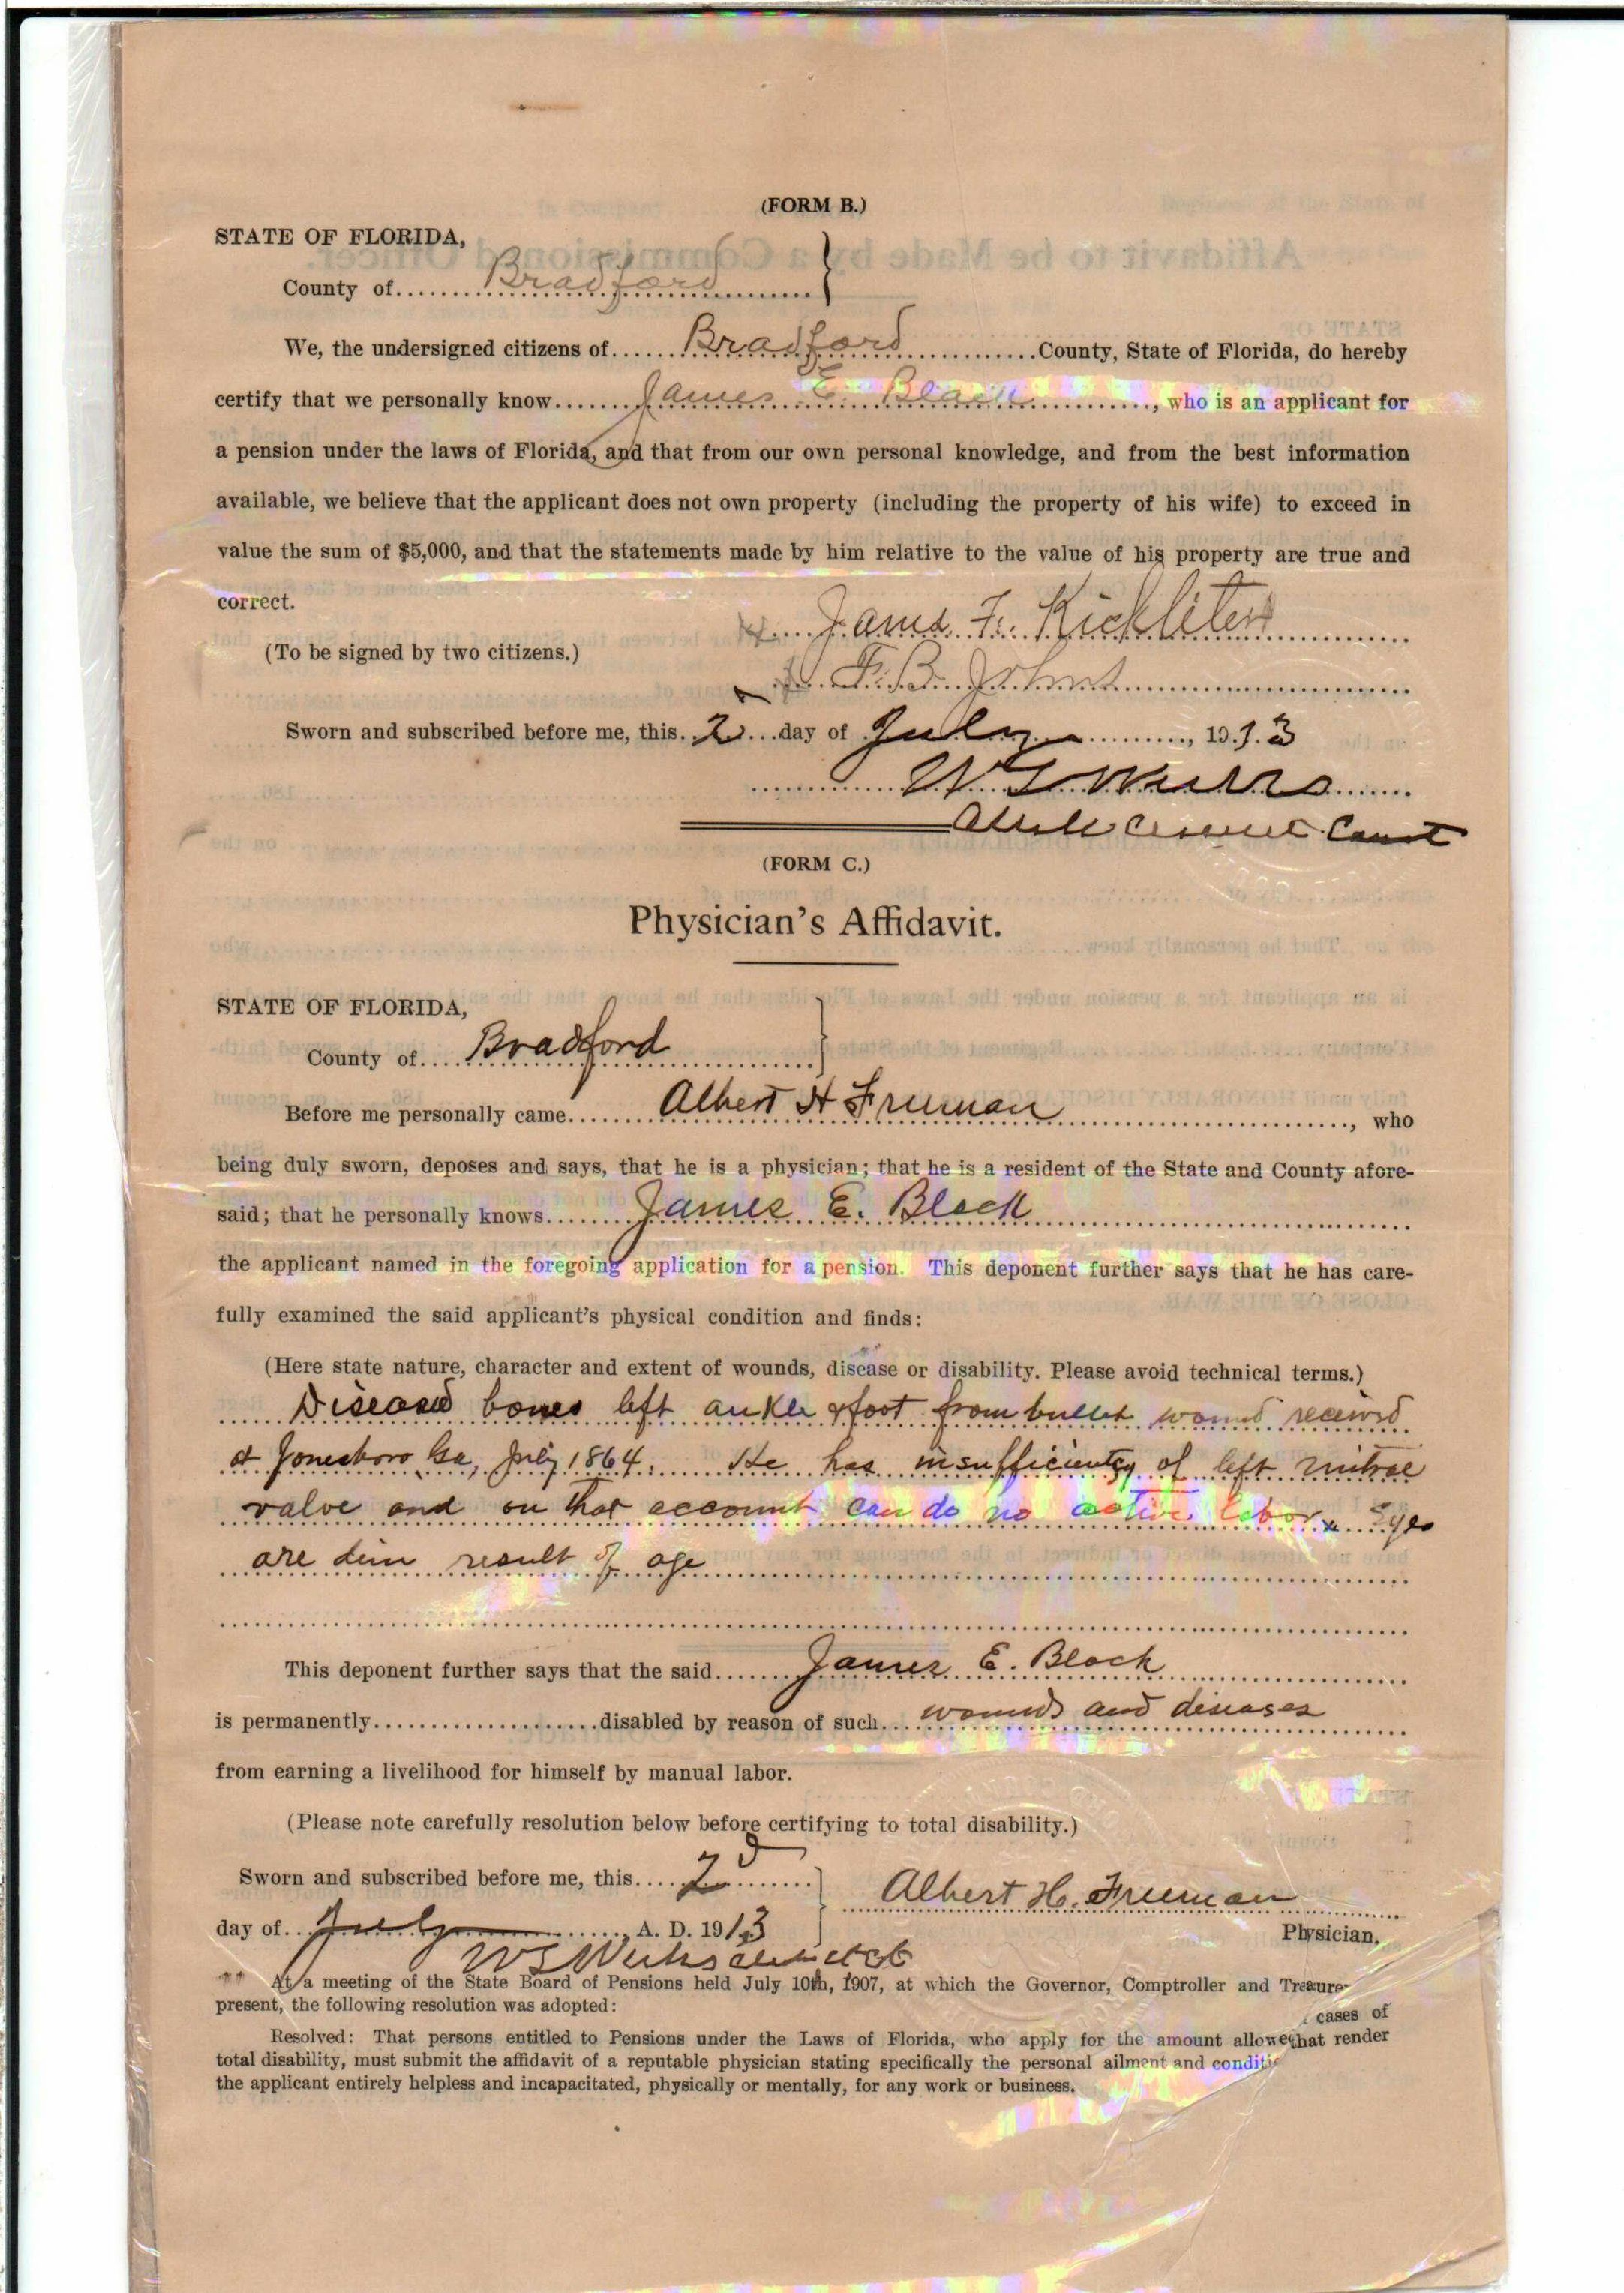 (FORM B.)
STATE OF FLORIDA,
County of Bradford
We, the undersigned citizens of Bradford County, State of Florida, do hereby
certify that we personally know James E. Black, who is an applicant for
a pension under the laws of Florida, and that from our own personal knowledge, and from the best information
available, we believe that the applicant does not own property (including the property of his wife) to exceed in
value the sum of $5,000, and that the statements made by him relative to the value of his property are true and
correct.
James F. Kickliter
(To be signed by two citizens.)
F. B. Johns
Sworn and subscribed before me, this 2 day of July, 1913
Circuit Court
(FORM C.)
Physician's Affidavit.
STATE OF FLORIDA,
County of Bradford
Before me personally came Albert H Freeman, who
being duly sworn, deposes and says, that he is a physician; that he is a resident of the State and County afore-
said; that he personally knows James E. Black
the applicant named in the foregoing application for a pension. This deponent further says that he has care-
fully examined the said applicant's physical condition and finds:
(Here state nature, character and extent of wounds, disease or disability. Please avoid technical terms.)
Diseased bones left ankle & foot from bullet wound received
at Jonesboro Ga, July 1864. He has insufficiency of left mitral
valve and on that account can do no active labor. Eyes
are dim result of age
This deponent further says that the said James E. Black
is permanently disabled by reason of such wounds and diseases
from earning a livelihood for himself by manual labor.
(Please note carefully resolution below before certifying to total disability.)
Sworn and subscribed before me, this 2d
Albert H. Freeman
day of July, A. D. 1913
Physician.
At a meeting of the State Board of Pensions held July 10th, 1907, at which the Governor, Comptroller and Treasure
present, the following resolution was adopted:
cases of
Resolved: That persons entitled to Pensions under the Laws of Florida, who apply for the amount allowe that render
total disability, must submit the affidavit of a reputable physician stating specifically the personal ailment and conditi
the applicant entirely helpless and incapacitated, physically or mentally, for any work or business.